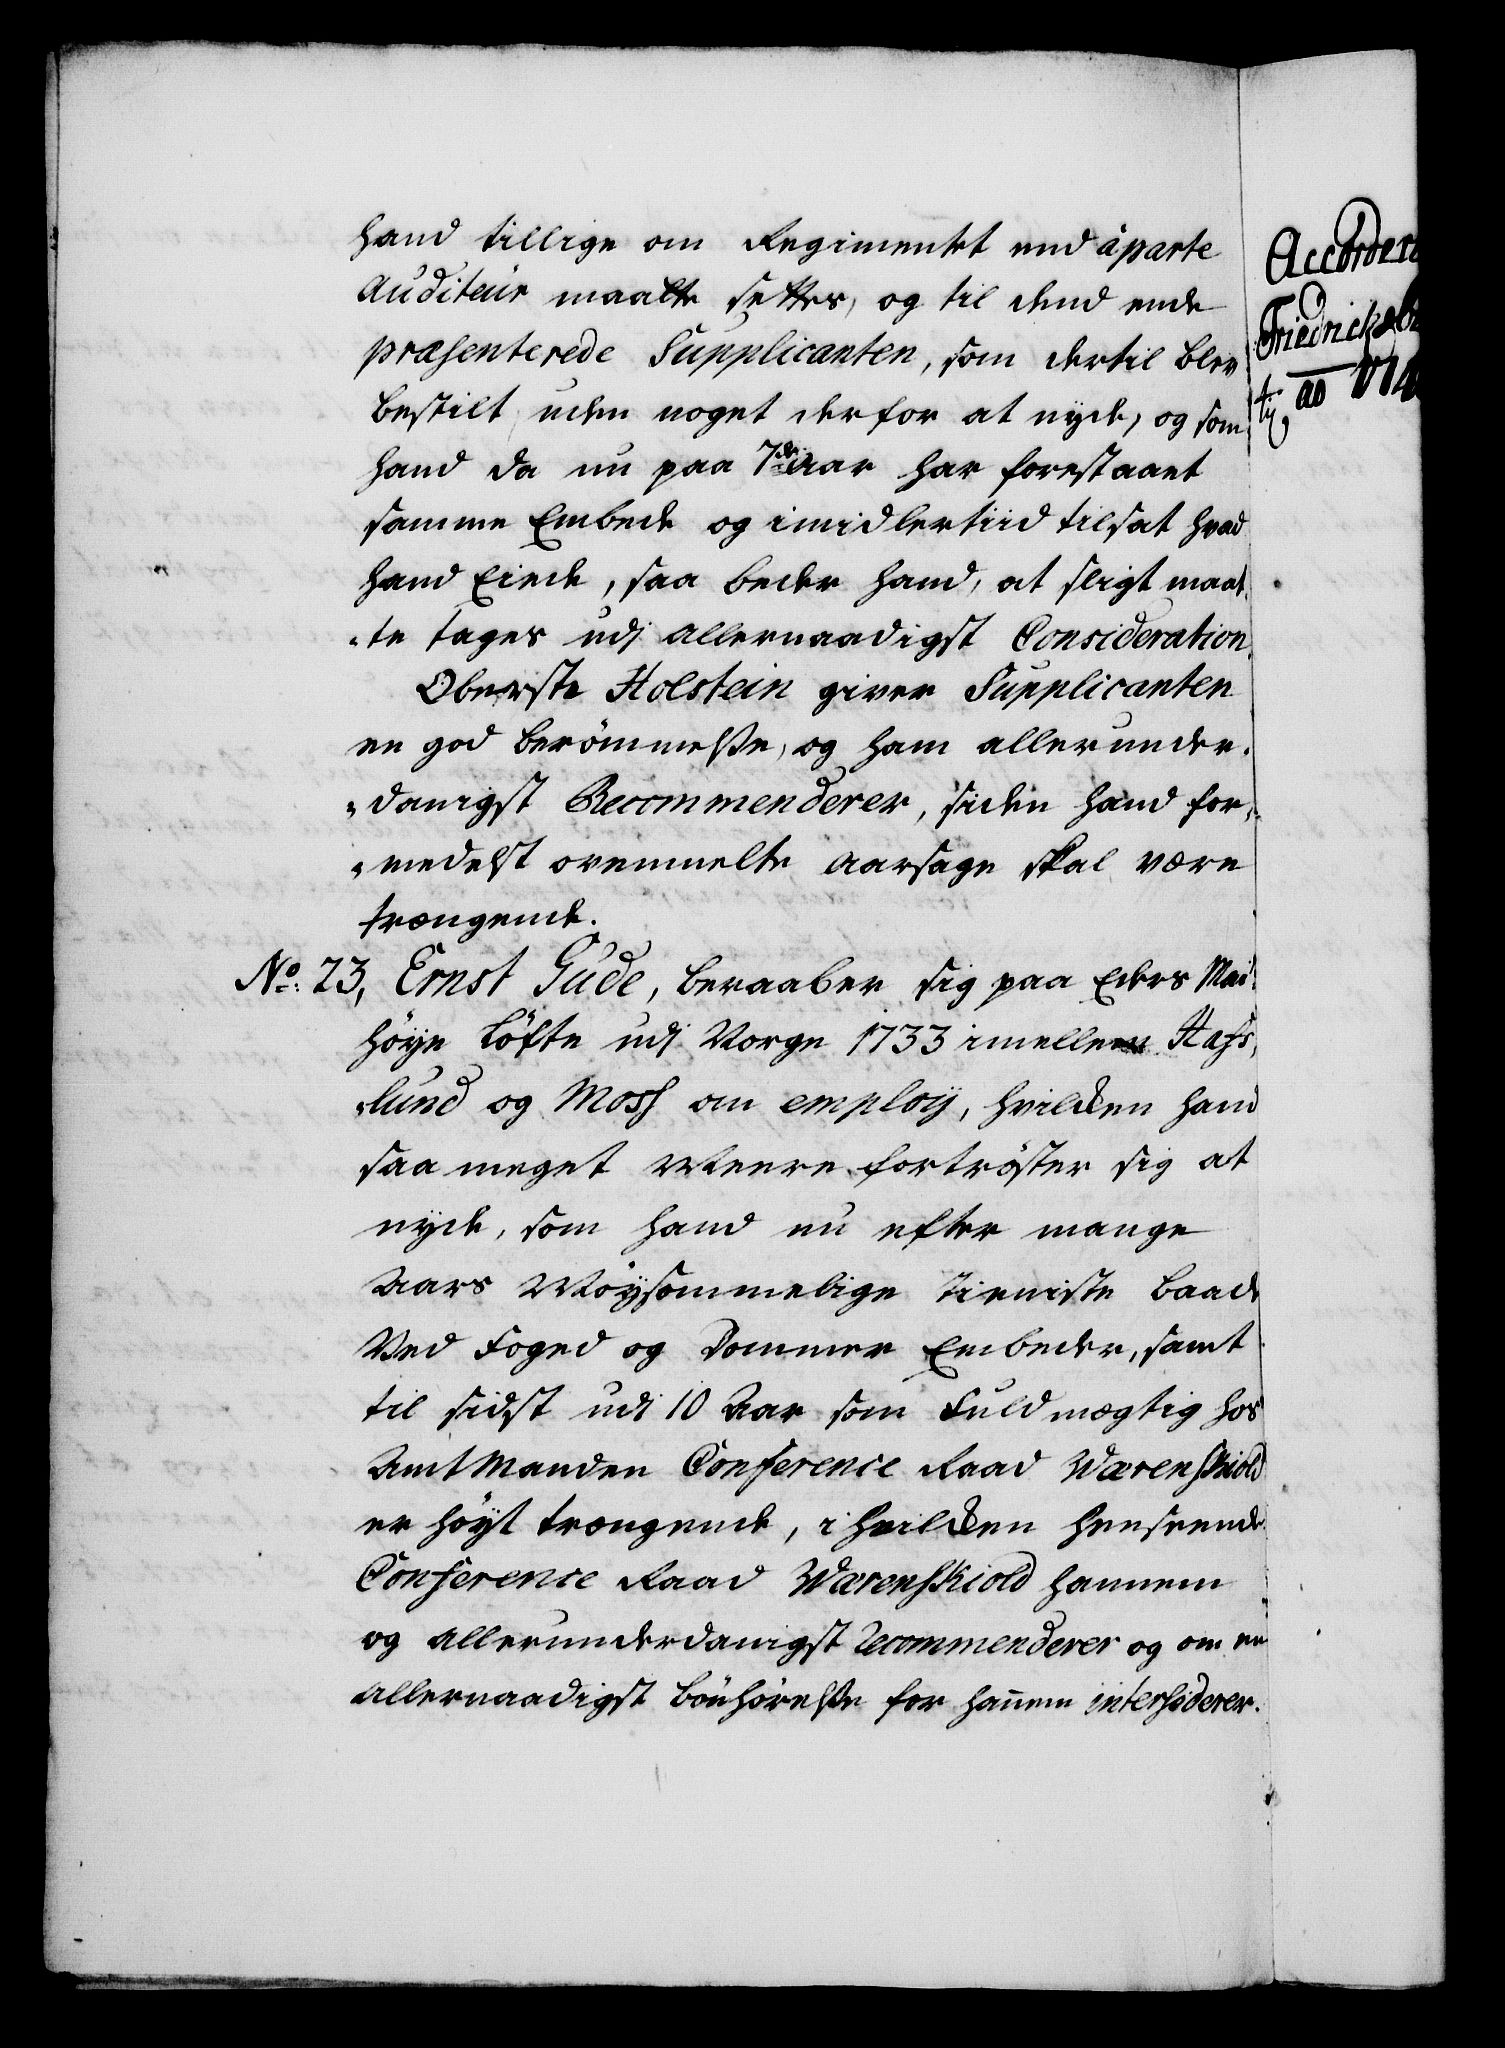 hand tillige om Regimentet end àparte
Auditeur maatte settes, og til dend ende
præsenterede Supplicanten, som dertil blev
bestilt uden noget derfor at nyde, og som
hand da nu paa 7de Aar har forestaaet
samme Embede og imidlertiid tilsat hvad
hand Eiede, saa beder hand, at sligt maat-
-te tages udj allernaadigst Consideration.
Oberste Holstein giver Supplicanten
en god berömmelse, og ham allerunder-
-danigst Recommenderer, siden hand for-
-medelst ovenmelte aarsage skal være
trængende.
No. 23, Ernst Gude, beraaber sig paa Eders Mai:
höye Löfte udj Norge 1733 imellem Hafs-
-lund og Moss om employ, hvilcken hand
saa meget Meere fortröster sig at
nyde, som hand nu efter mange
Aars Möysommelige Tieniste baade
Ved Foged og Dommer Embeder, samt
til sidst udi 10 Aar som Fuldmægtig hos
AmtManden Conference Raad Wærenskiold
er höyt trængende, i hvilcken henseende
Conference Raad Wærenskiold hannem
og allerunderdanigst recommenderer og om en
allernaadigst bönhörelse for hannem intersederer.
Friedrichsb